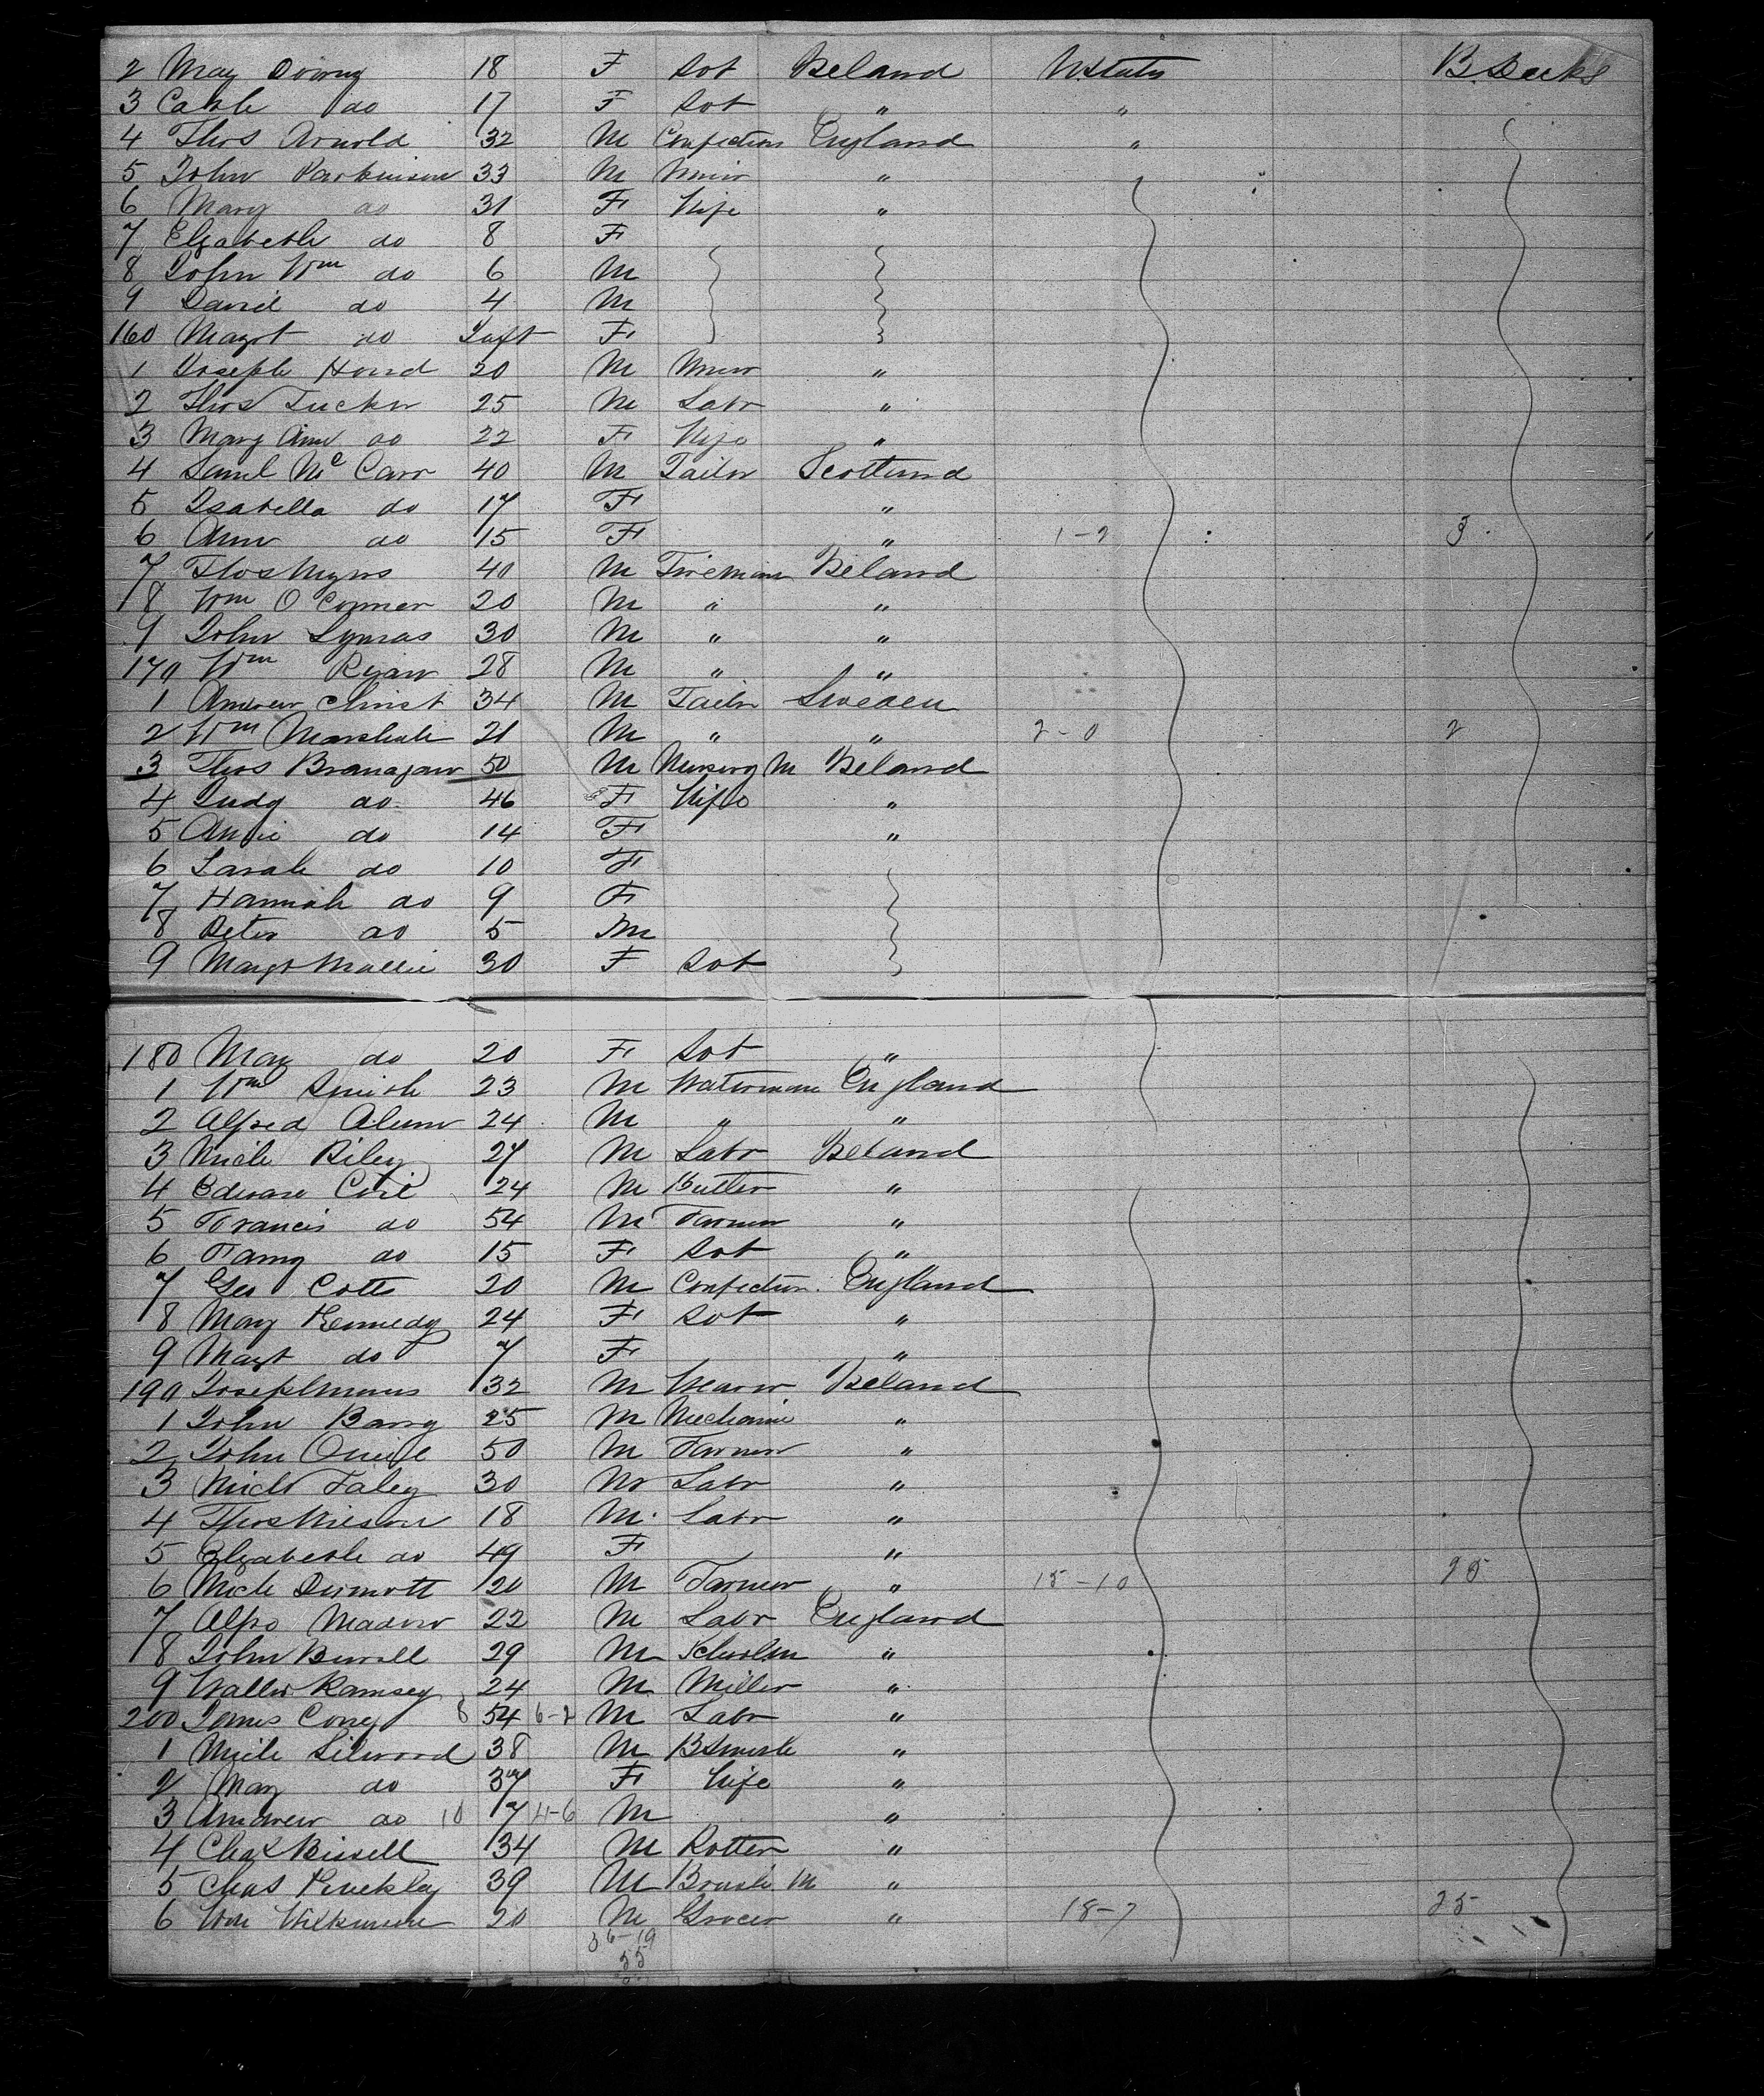 2 May Dowry 18 F Sot Ireland U States B. Decks
3 Cath do 17 F Sot " "
4 Thos Arnold 32 M Confection England "
5 John Parkinson 33 M Miner "
6 Mary do 31 F Wife "
7 Elzabeth do 8 F
8 John Wm do 6 M
9 David do 4 M
160 Magrt do Inft F
1 Joseph Hond 20 M Miner "
2 Thos Tucker 25 M Labr "
3 Mary Ann do 22 F Wife "
4 Saml Mc Carr 40 M Tailor Scotland
5 Isabella do 17 F "
6 Ann do 15 F " 1-2 3
7 Thos Myrs 40 M Fireman Ireland
8 Wm O Conner 20 M " "
9 John Lymas 30 M " "
170 Wm Ryan 28 M " "
1 Andrew Christ 34 M Tailor Sweden
2 Wm Marshale 21 M " " 2-0 2
3 Thos Branagan 50 M Nursery M Ireland
4 Judy do 46 F Wife "
5 Annie do 14 F "
6 Sarah do 10 F
7 Hannah do 9 F
8 Peter do 5 M
9 Magt Mallie 30 F Sot
180 May do 20 F Sot "
1 Wm Smith 23 M Waterman England
2 Alfred Alum 24 M " "
3 Mich Riley 27 M Labr Ireland
4 Edward Coil 24 M Butler "
5 Francis do 54 M Farmer "
6 Fanny do 15 F Sot "
7 Geo Cotts 20 M Confection. England
8 May Kennedy 24 F Sot "
9 Magt do 7 F "
190 Joseph 32 M Weaver Ireland
1 John Barry 25 M Mechanic "
2 John Oneile 50 M Farmer "
3 Mich Faley 30 M Labr "
4 Thos Wilson 18 M. Labr "
5 Elzabeth do 49 F "
6 Mich Dermott 20 M Farmer " 15-10 25
7 Alfro 22 M Labr England
8 John Burrell 29 M "
9 Walter Ramsey 24 M Miller "
200 James Coney 8 54 6-2 M Labr "
1 Mich Silwood 38 M B Smith "
2 May do 37 F Wife "
3 Andrew do 10 17 4-6 M "
4 Chas Bissell 34 M Potter "
5 Chas Pinckley 39 M Brush. M "
6 Wm Wilkinson 20 M Grocer " 18-7 25
36-19
55